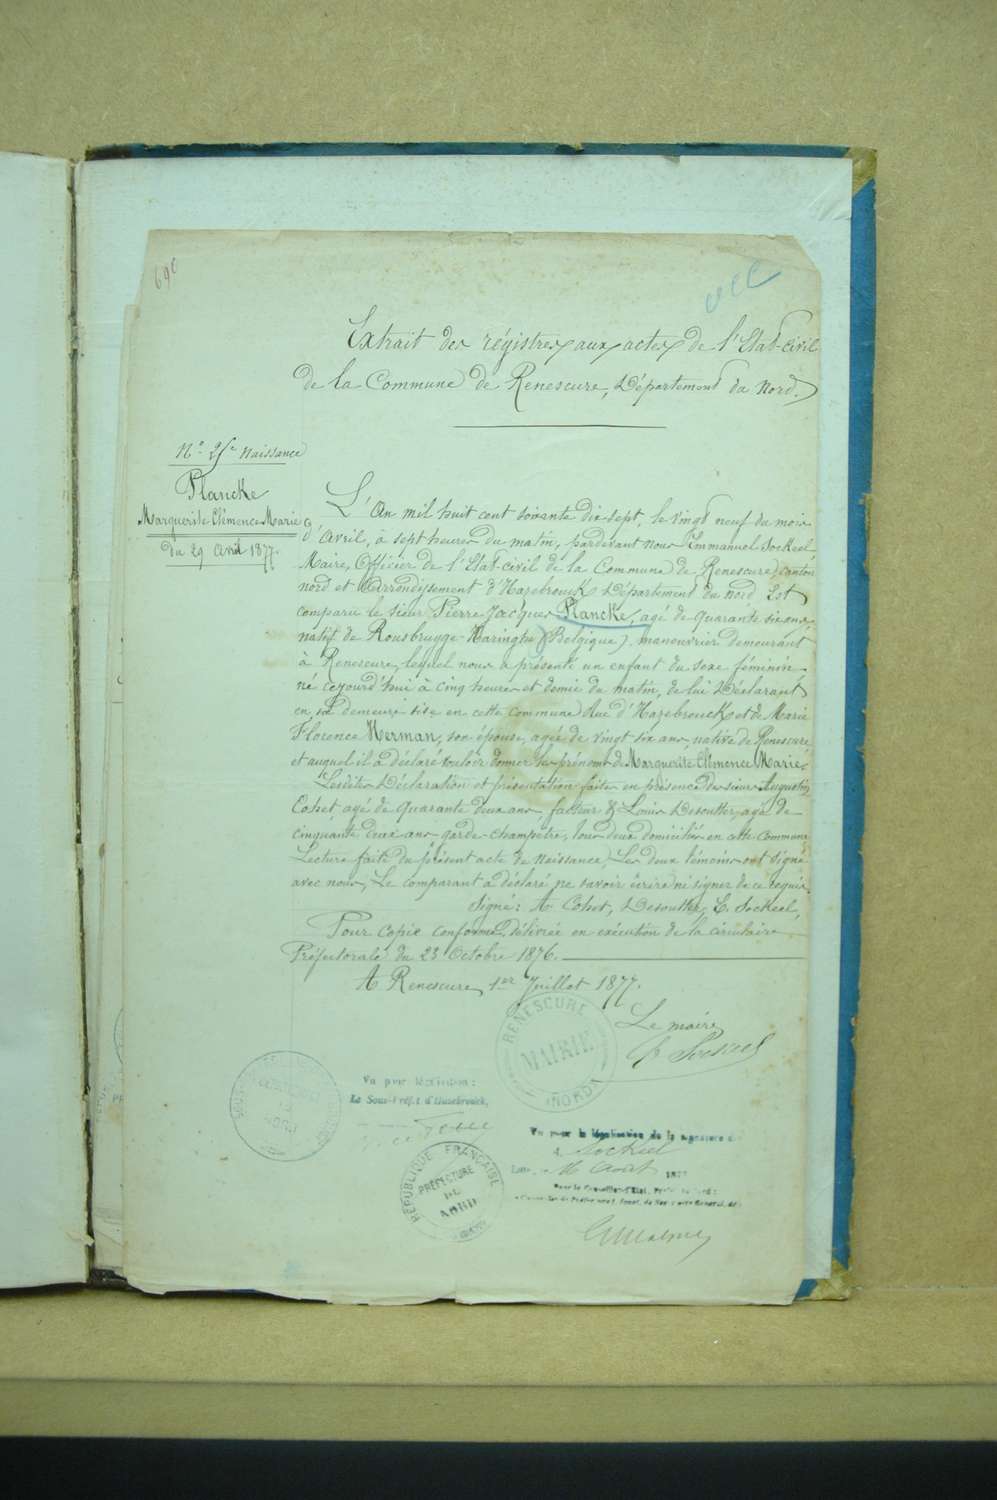 690
Extrait des régistres aux actes de l'Etat-civil
de la Commune de Renescure, Département du Nord.
Naissance
Plancke
Marguerite Clémence Marie
du 29 Avril 1877.
L'An mil huit cent soixante dix-sept, le vingt neuf du mois
d'Avril, à sept heures du matin, pardevant nous Emmanuel Sockeel,
Maire, Officier de l'Etat-civil de la Commune de Renescure, canton
nord et Arrondissement d'Hazebrouck Département du Nord Est
comparu le sieur Pierre Jacques Plancke, agé de quarante six ans,
natif de Rousbrugge-Haringhe (Belgique), manouvrier demeurant
à Renescure, lequel nous a présenté un enfant du sexe féminin
né cejourd'hui à cinq heures et demie du matin, de lui Déclarant
en sa demeure sise en cette commune Rue d'Hazebrouck et de Marie
Florence Herman, son épouse, agée de vingt six ans, native de Renescure
et auquel il a déclaré vouloir donner les prénoms de Marguerite Clémence Marie.
Lesdites Déclaration et présentation faites en présence des sieurs Augustin
Cohet, agé de quarante deux ans, facteur & Louis Desoutter, agé de
cinquante deux ans garde-champêtre, tous deux domiciliés en cette commune
Lecture faite du présent acte de naissance, Les deux témoins ont signé
avec nous, Le comparant a déclaré ne savoir écrire ni signer de ce requis.
Signé: A. Cohet, Desoutter, E. Sockeel,
Pour copie conforme, délivrée en exécution de la circulaire
Préfectorale du 23 Octobre 1876.
A Renescure, 1er Juillet 1877.
RENESCURE
MAIRIE
(NORD)
Le maire
E. Sockeel
Vu pour législation:
Le Sous-Préfet d'Hazebrouck,
Vu pour la légalisation de la signature de
M. Sockeel
Août 187
RÉPUBLIQUE FRANÇAISE
PRÉFECTURE
DU
NORD